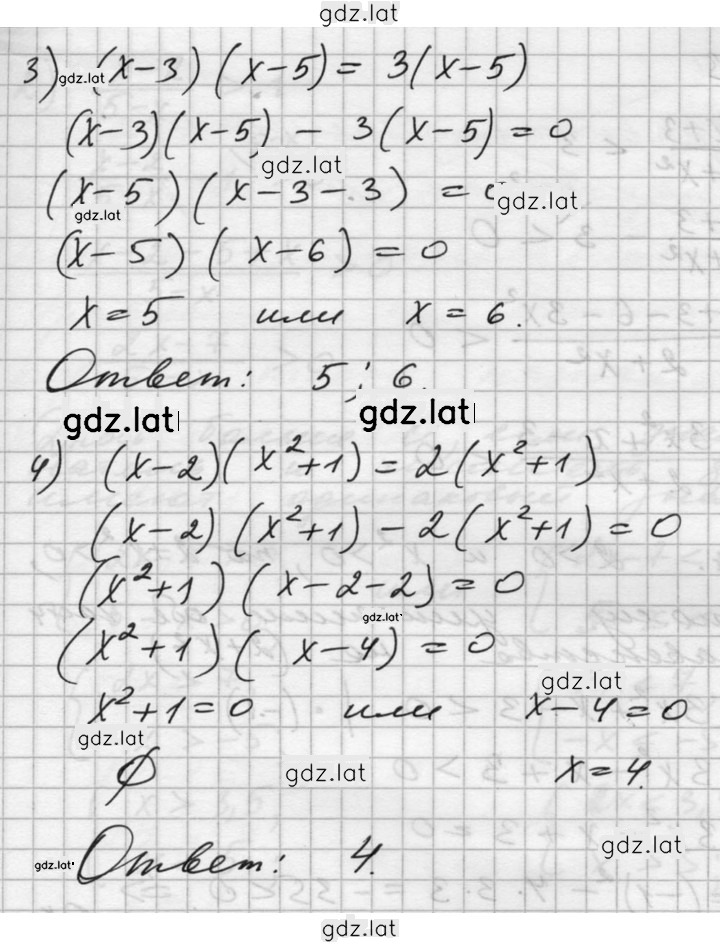 gdz.lat
3) gdz.lat (x-3)(x-5) = 3(x-5)
(x-3)(x-5) - 3(x-5) = 0
gdz.lat
(x-5)(x-3-3) =
gdz.lat gdz.lat
(x-5)(x-6) = 0
x = 5 или x = 6.
Ответ: 5; 6.
gdz.lat gdz.lat
4) (x-2)(x²+1) = 2(x²+1)
(x-2)(x²+1) - 2(x²+1) = 0
(x²+1)(x-2-2) = 0
gdz.lat
(x²+1)(x-4) = 0
gdz.lat
x²+1 = 0 или x-4 = 0
gdz.lat
∅ gdz.lat x = 4.
gdz.lat
gdz.lat Ответ: 4.
gdz.lat